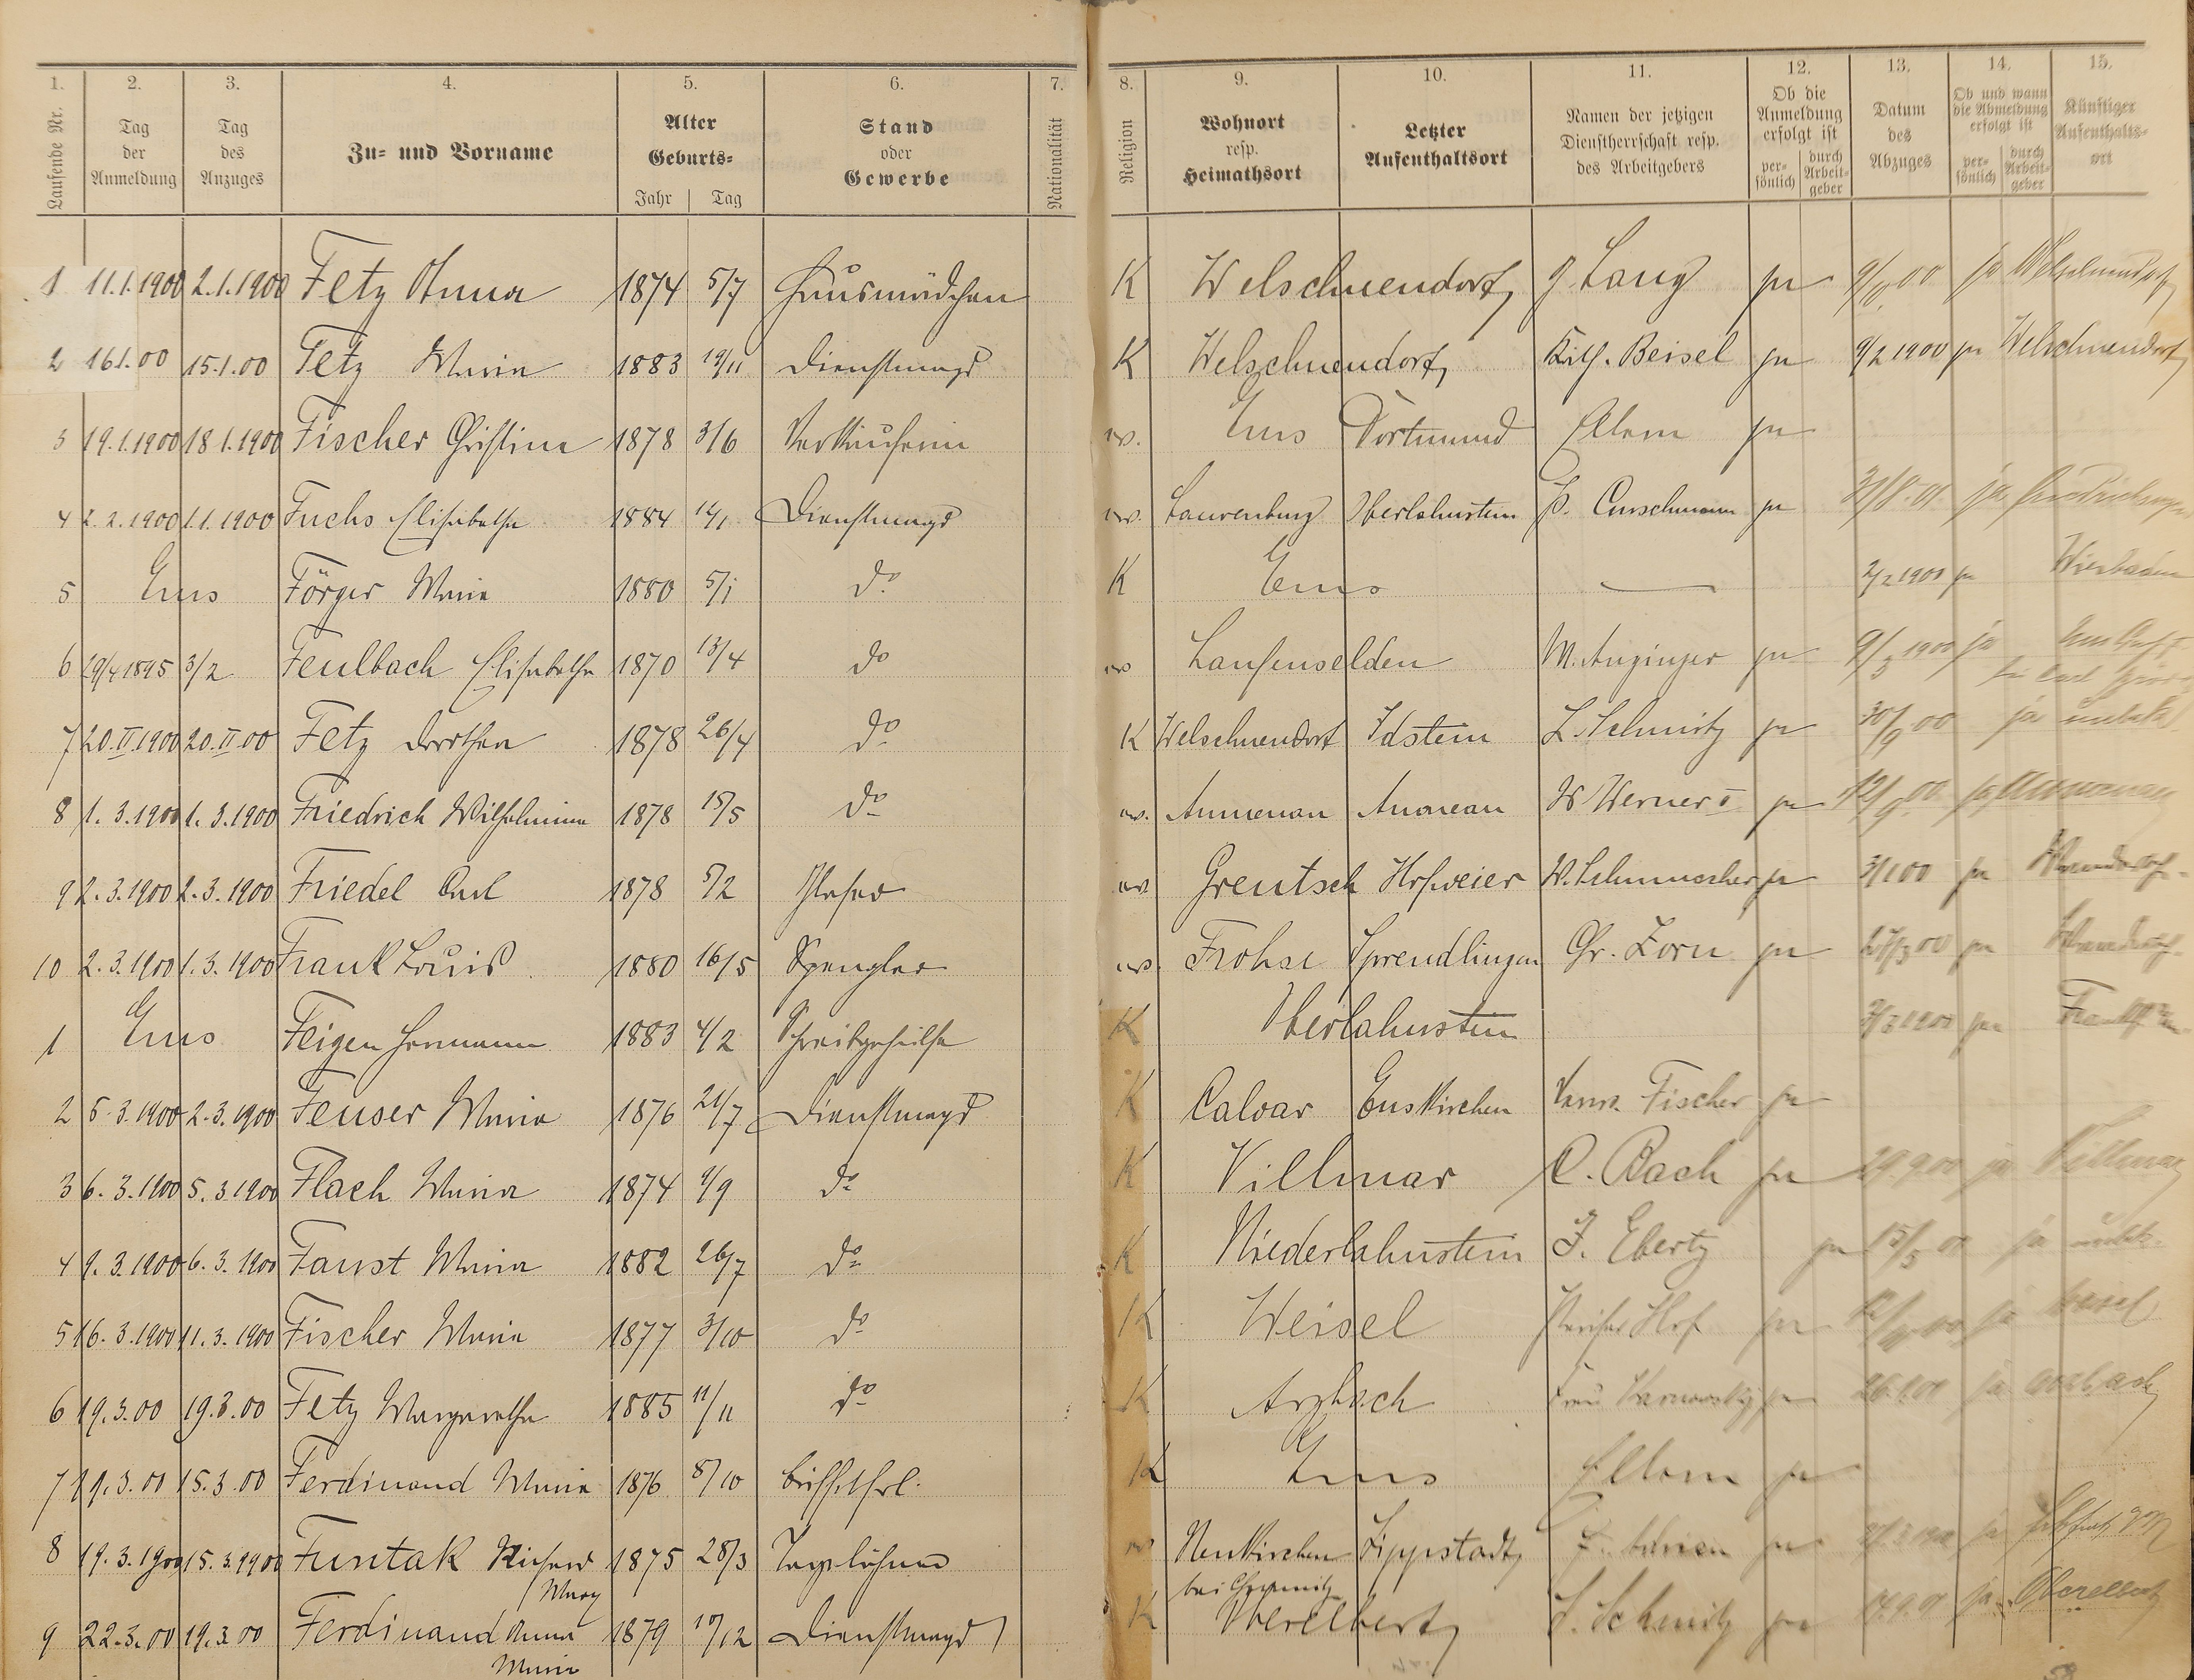 1. 2. 3. 4. 5. 6. 7. 8. 9. 10. 11. 12. 13. 14. 15.
Laufende Nr. | Tag der Anmeldung | Tag des Anzuges | Zu- und Vorname | Alter Geburts- Jahr Tag | Stand oder Gewerbe | Nationalität | Religion | Wohnort resp. Heimathsort | Letzter Aufenthaltsort | Namen der jetzigen Dienstherrschaft resp. des Arbeitgebers | Ob die Anmeldung erfolgt ist persönlich durch Arbeitgeber | Datum des Abzuges | Ob und wann die Abmeldung erfolgt ist persönlich durch Arbeitgeber | Künftiger Aufenthaltsort
1 11.1.1900 2.1.1900 Fetz Anna 1874 5/7 Hausmädchen K Welschneudorf J. Lang ja 9/11 00 ja Welschneudorf
2 16.1.00 15.1.00 Fetz Maria 1883 19/11 Dienstmagd K Welschneudorf Beisel ja 9/2 1900 ja Welschneudorf
3 19.1.1900 18.1.1900 Fischer Christine 1878 3/6 Verkäuferin ev. Ems Dortmund Eltern ja
4 2.2.1900 1.1.1900 Fuchs Elisabetha 1884 14/1 Dienstmagd ev. Laurenburg Oberlahnstein Curschmann ja ja
5 Ems Förger Maria 1880 5/1 do K Ems — 2/2 1900 ja Wiesbaden
6 29/4 1895 3/2 Feulbach Elisabetha 1870 13/4 do ev Laufenselden M. Anzinger ja 9/3 1900 ja
7 20.II.1900 20.II.00 Fetz Dorothea 1878 26/4 do K Welschneudorf Idstein L. Schmitz ja 30/9 00 ja unbek.
8 1.3.1900 1.3.1900 Friedrich Wilhelmina 1878 15/5 do ev. Aumenau Aumenau W Werner I ja 12/9 00 ja Aumenau
9 2.3.1900 2.3.1900 Friedel Carl 1878 5/2 Glaser ev Greutsch Hofweier W. Schumacher ja ja
10 2.3.1900 1.3.1900 Frank Louis 1880 16/5 Spengler ev. Frohse Sprendlingen Chr. Zorn ja 27/3 00 ja
1 Ems Feigen Hermann 1883 4/2 Schreibgehülfe K Oberlahnstein 3/3 1900 ja
2 5.3.1900 2.3.1900 Feuser Maria 1876 21/7 Dienstmagd K Calvar Euskirchen Fischer ja
3 6.3.1900 5.3.1900 Flach Maria 1874 9/9 do K Villmar C. Bach ja 29.9.00 ja Villmar
4 9.3.1900 6.3.1900 Faust Maria 1882 26/7 do K Niederlahnstein J. Ebertz ja 15/5 00 ja unbek.
5 16.3.1900 11.3.1900 Fischer Maria 1877 3/10 do K Weisel Hof ja ja Weisel
6 19.3.00 19.3.00 Fetz Margaretha 1885 11/11 do K Arzbach Frau ja ja Arzbach
7 19.3.00 15.3.00 Ferdinand Maria 1876 8/10 Büffetfrl. K Ems Eltern ja
8 19.3.1900 15.3.1900 Funtak Richard Max 1875 28/3 Tagelöhner ev Neukirchen bei Chemnitz Lippstadt ja ja
9 22.3.00 19.3.00 Ferdinand Anna Maria 1879 10/12 Dienstmagd K Oberelbert Schmitz ja ja Oberelbert
58